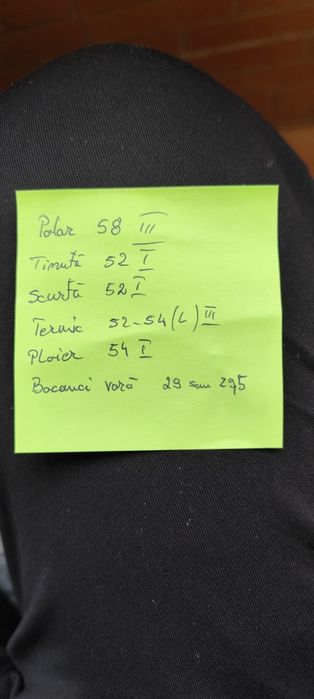 Polar 58 III
Ținută 52 I
Scurtă 52 I
Termic 52-54 (L) III
Ploier 54 I
Bocanci vară 29 sau 29,5